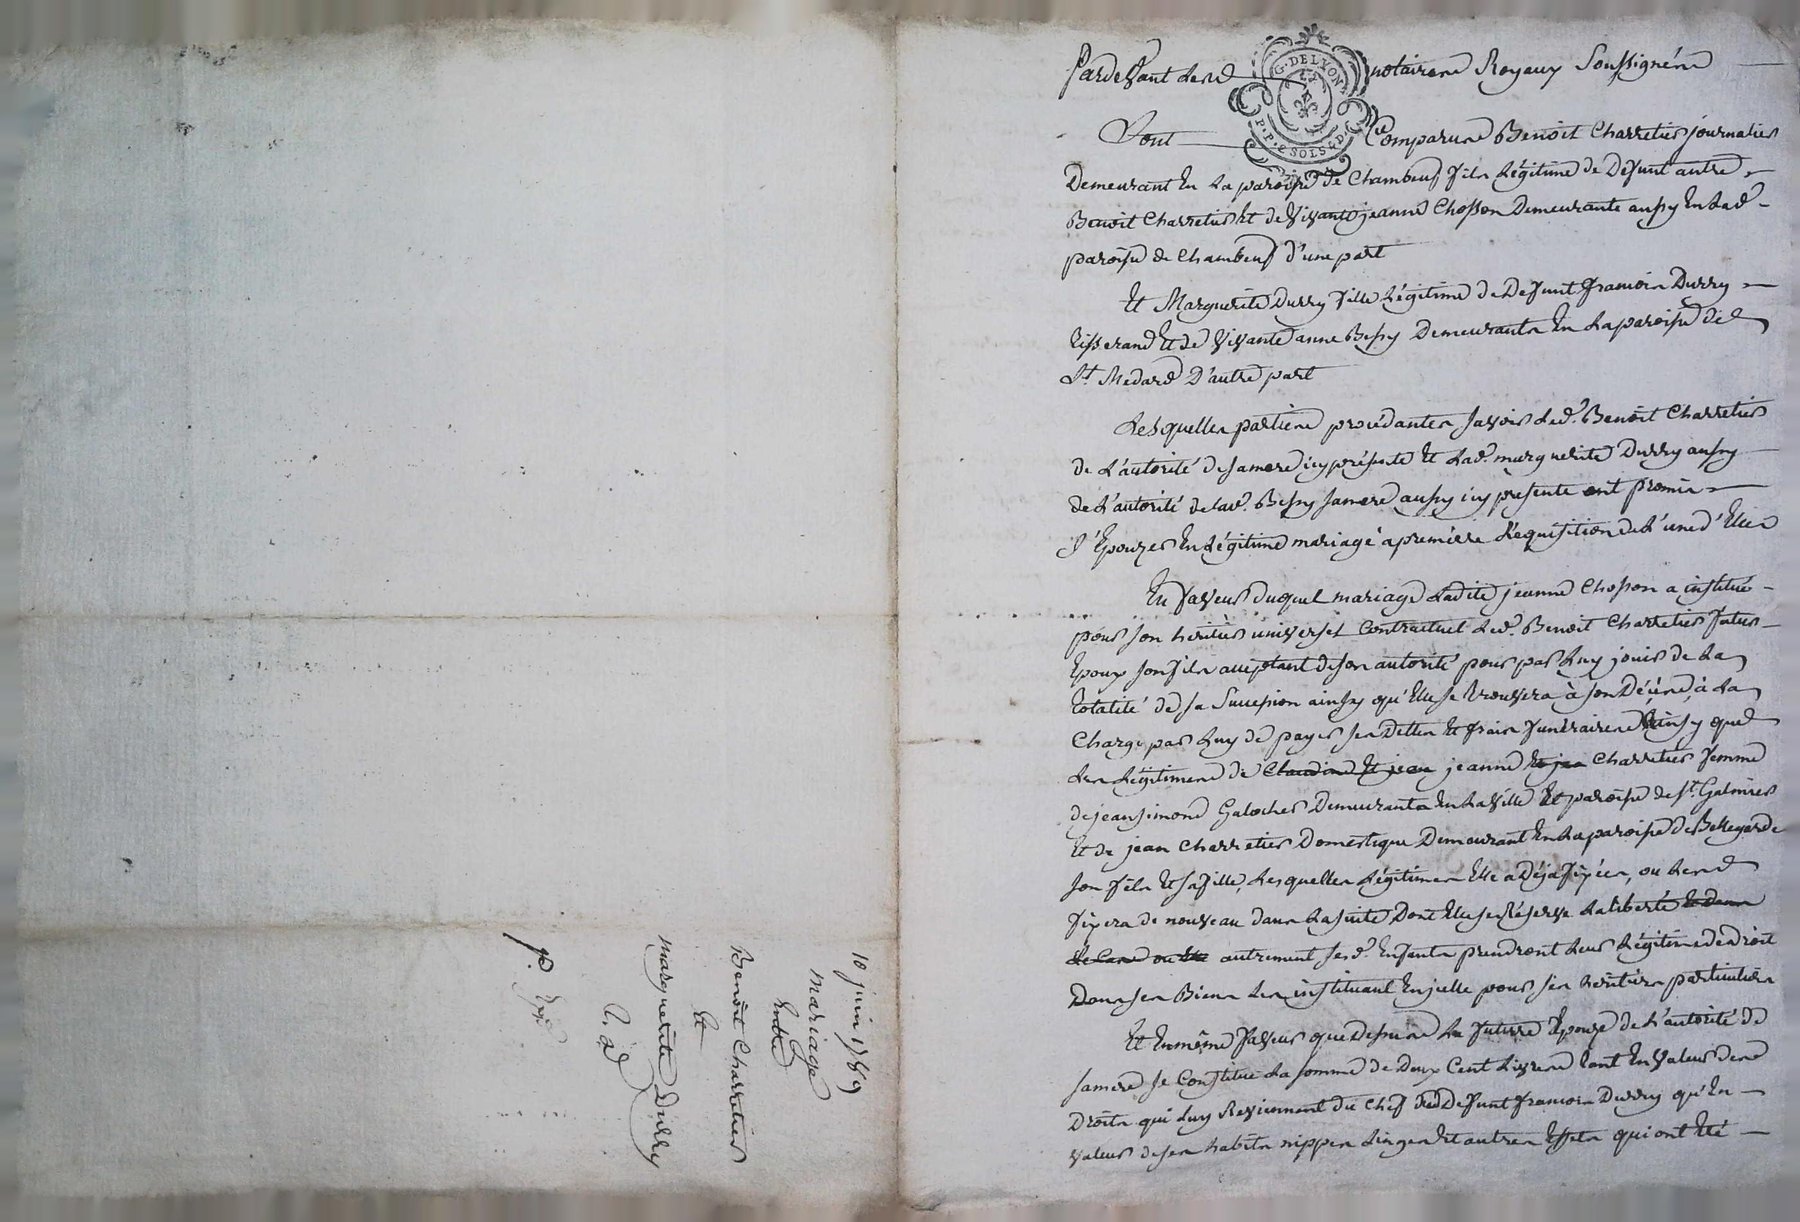 10 juin 1789
mariage
Entre
Benoit Charretier
Et
marguerite Durry
P.
Pardevant Les notaires Royaux Soussignés
G. DE LYON
P. P. 2 SOLS 4 D.
Sont Comparus Benoit Charretier journalier
Demeurant En La paroisse de Chambeuf fils Légitime de Defunt autre
Benoit Charretier Et de Vivante jeanne Chosson Demeurante aussy En Lad.
paroisse de Chambeuf d'une part
Et Marguerite Durry fille Légitime de Defunt francois Durry
tisserand Et de Vivante anne Bessy Demeurante En La paroisse de
St. Medard D'autre part
Lesquelles parties procédantes savoir Led. Benoit Charretier
de L'autorité de sa mere icy présente Et Lad. marguerite Durry aussy
de L'autorité de lad. Bessy sa mere aussy icy presente ont promis
s'Epouzer En Légitime mariage a première Requisition de L'une d'Elles
En faveur duquel mariage Ladite jeanne Chosson a institué
pour son heritier universel Contractuel Led. Benoit Charretier futur
Epoux son fils acceptant de son autorité pour par Luy jouir de La
totalité de sa Succession ainsy qu'Elle se trouvera à son Décéds, à La
Charge par Luy de payer ses Dettes Et frais funéraires ainsy que
Les Légitimes de Claudine Et jean jeanne Et jea Charretier femme
de jean simond Galocher Demeurante En La Ville Et paroisse de St. Galmier
Et de jean Charretier Domestique Demeurant En La paroisse de Bellegarde
son fils Et sa fille, Lesquelles Légitimes Elle a Déja fixées, ou Les
fixera de nouveau dans La suite Dont Elle se Réserve La liberté Et dans
Le Cas ou Elle autrement sesd. Enfants prendront Leur Légitime de droit
Dans ses Biens Les instituant En jcelle pour ses héritiers particuliers
Et En même faveur que Dessus La future Epouze de L'autorité de
sa mere se Constitue La somme de Deux Cent Livres tant En Valeur des
Droits qui Luy Reviennent du Chef de Defunt francois Durry qu'En
Valeur de ses habits nippes Linges Et autres Effets qui ont Eté